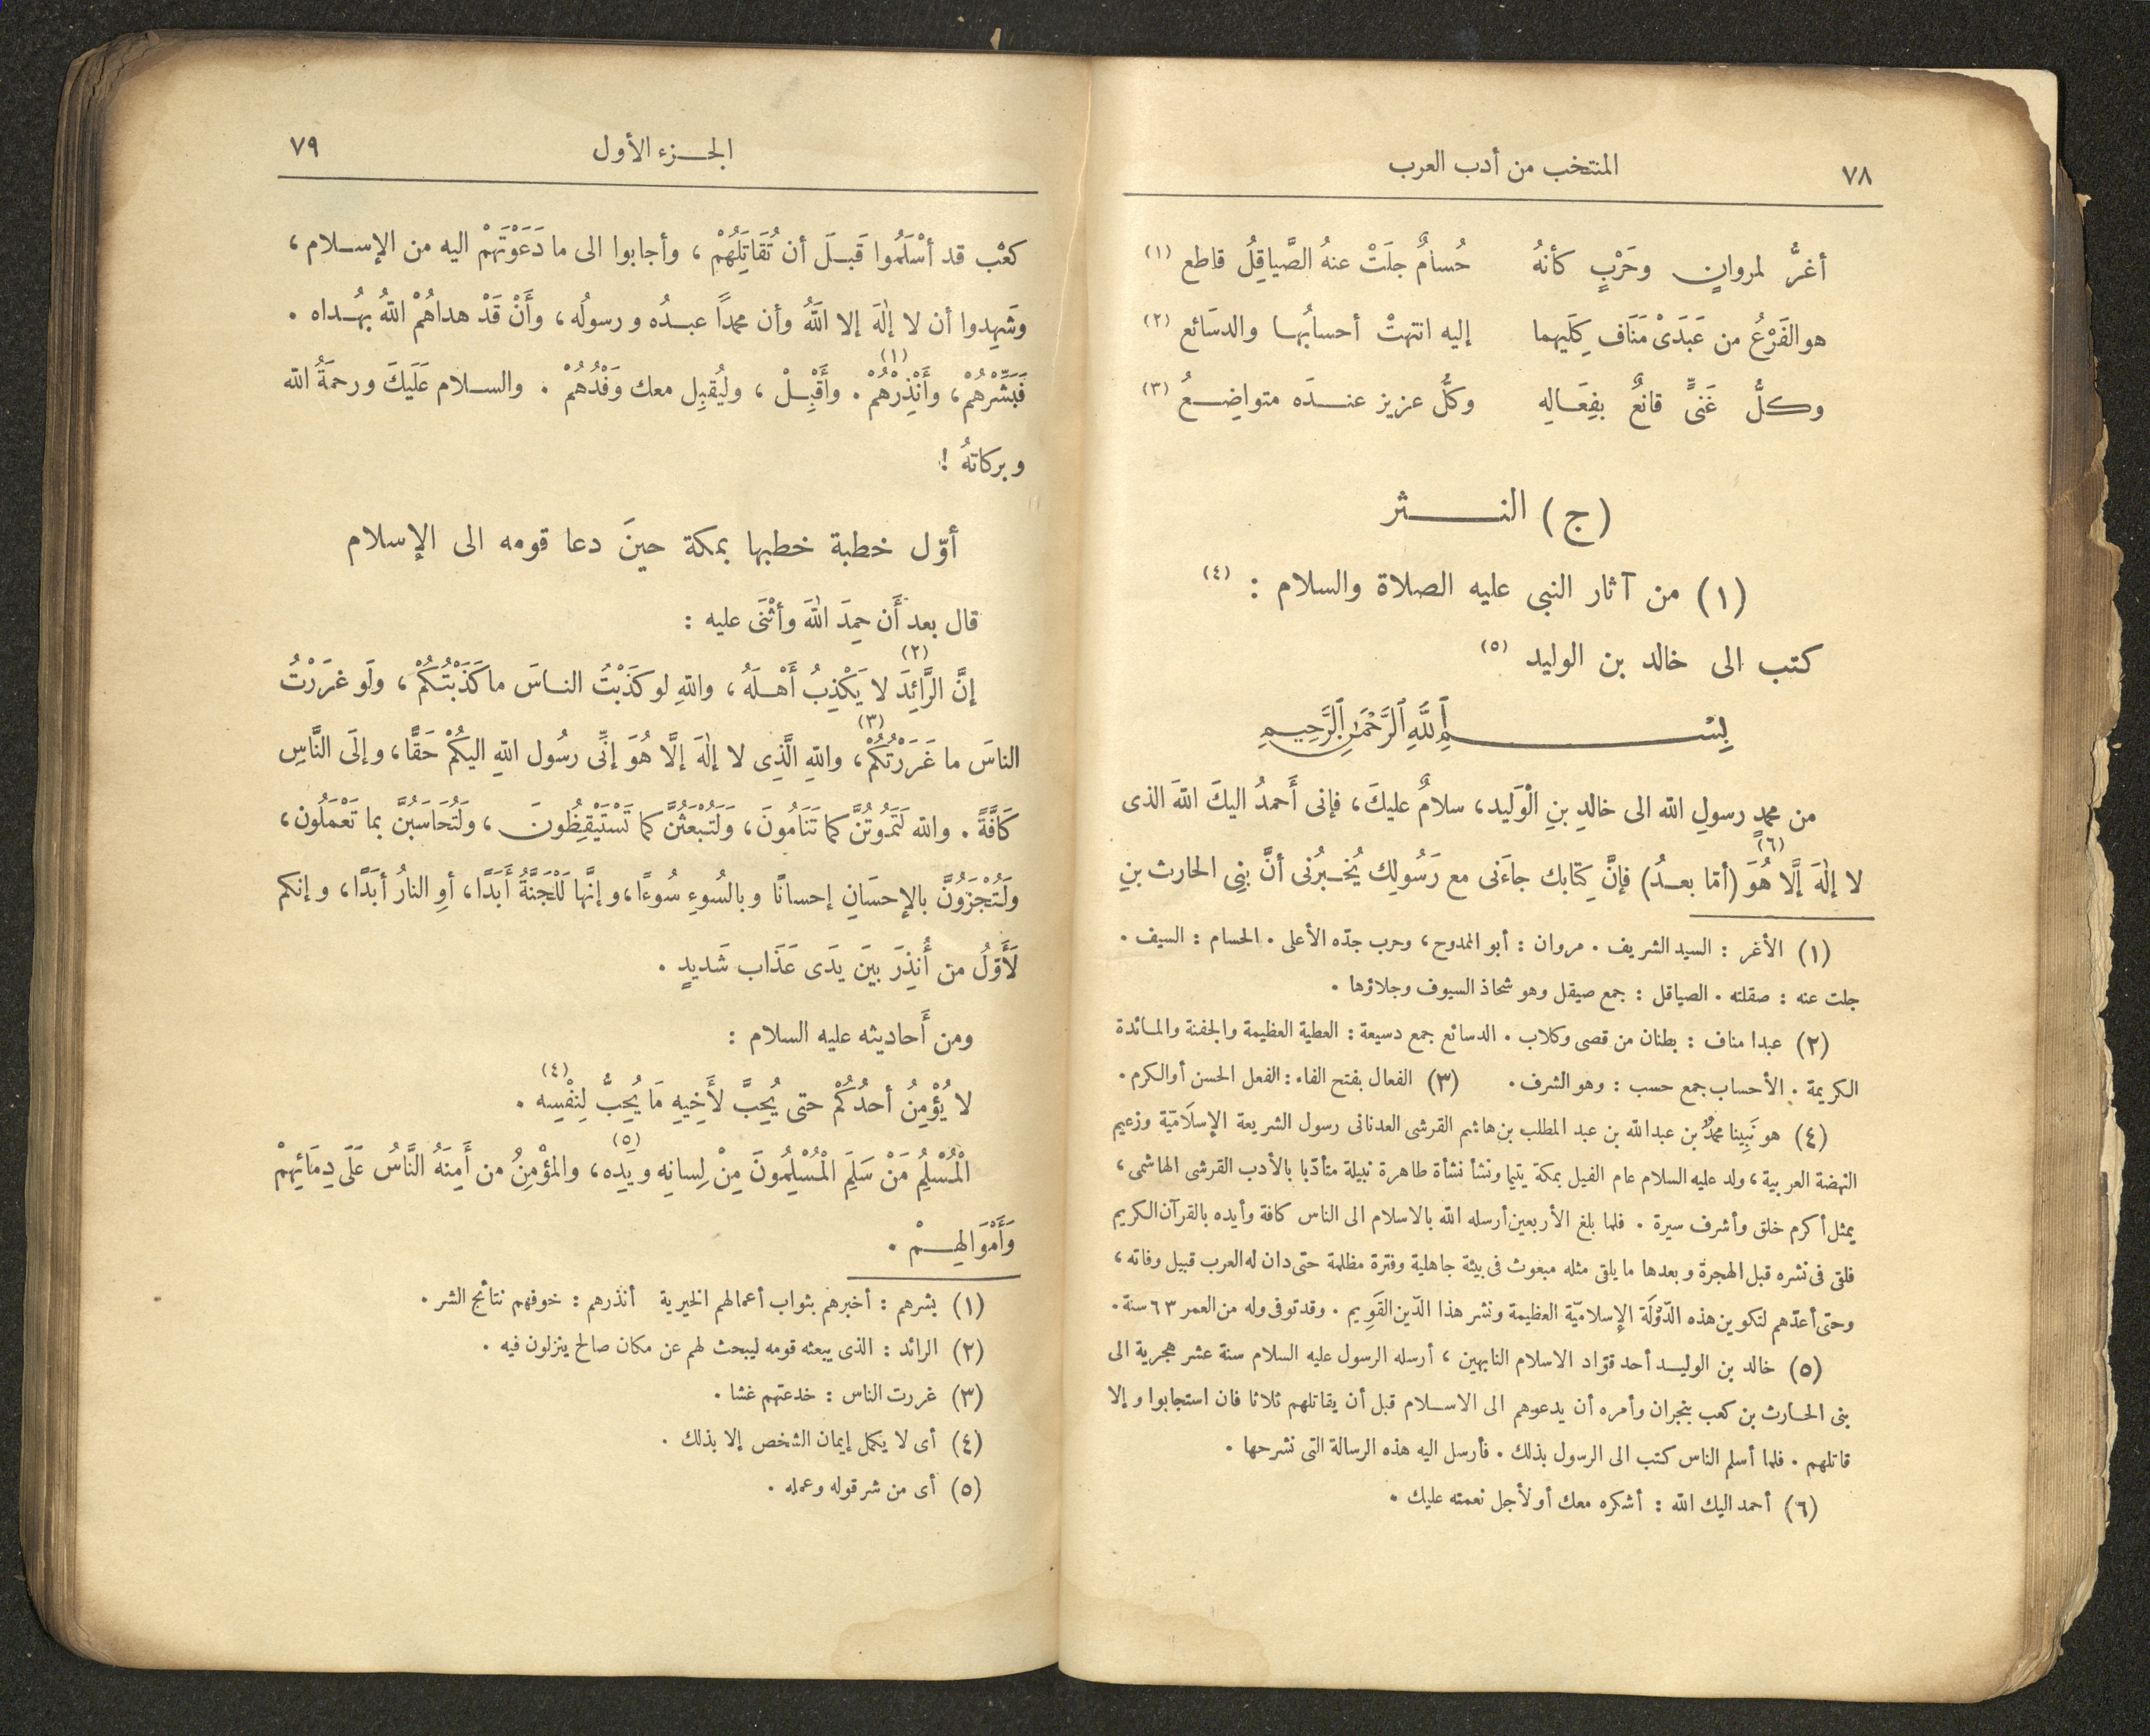 ٧٨
المنتخب من أدب العرب
أغرُّ لمروانٍ وحَرْبٍ كأنهُ حُسامٌ جلَتْ عنهُ الصَّياقِلُ قاطع (١)
هو الفَرْعُ من عَبَدَىْ مَنَاف كِلَيهما إليه انتهتْ أحسابُها والدسَائع (٢)
وكلُّ غَنىٍّ قانعٌ بفِعَالِه وكلُّ عزيز عندَه متواضِعُ (٣)
(ج) النثر
(١) من آثار النبى عليه الصلاة والسلام : (٤)
كتب الى خالد بن الوليد (٥)
بِسْمِ ٱللَّهِ ٱلرَّحْمَٰنِ ٱلرَّحِيمِ
من محمدٍ رسولِ الله الى خالدِ بنِ الْوَليد، سلامٌ عليكَ، فإنى أَحمدُ اليكَ اللهَ الذى
لا إلٰهَ إلَّا هُوَ (٦) (أمّا بعدُ) فإنَّ كِتَابك جاءَنى مع رَسُولِك يُخبرُنى أنَّ بنِى الحارث بنِ
(١) الأغر : السيد الشريف . مروان : أبو الممدوح، وحرب جدّه الأعلى . الحسام : السيف .
جلت عنه : صقلته . الصياقل : جمع صيقل وهو شحاذ السيوف وجلاؤها .
(٢) عبدا مناف : بطنان من قصى وكلاب . الدسائع جمع دسيعة : العطية العظيمة والجفنة والمائدة
الكريمة . الأحساب جمع حسب : وهو الشرف . (٣) الفعال بفتح الفاء : الفعل الحسن أو الكرم .
(٤) هو نَبِينا محمدٌ بن عبدالله بن عبد المطلب بن هاشم القرشى العدنانى رسول الشريعة الإسلَاميّة وزعيم
النهضة العربية، ولد عليه السلام عام الفيل بمكة يتيما ونشأ نشأة طاهرة نبيلة متأدّبا بالأدب القرشى الهاشمى،
يمثل أكرم خلق وأشرف سيرة . فلما بلغ الأربعين أرسله الله بالاسلام الى الناس كافة وأيده بالقرآن الكريم
فلقى فى نشره قبل الهجرة وبعدها ما يلقى مثله مبعوث فى بيئة جاهلية وفترة مظلمة حتى دان له العرب قبيل وفاته،
وحتى أعدّهم لتكوين هذه الدّوْلَة الإسلاميّة العظيمة ونشر هذا الدّين القَوِيم . وقد توفى وله من العمر ٦٣ سنة .
(٥) خالد بن الوليد أحد قوّاد الاسلام النابهين، أرسله الرسول عليه السلام سنة عشر هجرية الى
بنى الحارث بن كعب بنجران وأمره أن يدعوهم الى الاسلام قبل أن يقاتلهم ثلاثا فان استجابوا وإلا
قاتلهم . فلما أسلم الناس كتب الى الرسول بذلك . فأرسل اليه هذه الرسالة التى نشرحها .
(٦) أحمد اليك الله : أشكره معك أو لأجل نعمته عليك .
الجزء الأول
٧٩
كعْب قد أسْلَمُوا قَبلَ أن تُقَاتِلَهُمْ، وأجابوا الى ما دَعَوْتَهمْ اليه من الإسلام،
وشَهِدوا أن لا إلٰهَ إلا اللهُ وأن محمداً عبدُه ورسولُه، وأَنْ قَدْ هداهُمْ اللهُ بهُداه .
فَبَشِّرْهُمْ، وأَنْذِرْهُمْ (١) . وأَقْبِلْ، وليُقبِل معك وَفْدُهُمْ . والسلام عَلَيكَ ورحمَةُ الله
وبركاتهُ !
أوّل خطبة خطبها بمكة حينَ دعا قومه الى الإسلام
قال بعد أَن حمِدَ اللهَ وأثْنَى عليه :
إنَّ الرَّائِدَ (٢) لا يَكْذِبُ أَهْلَهُ، واللهِ لو كذَبْتُ الناسَ ما كَذَبْتُكُمْ، ولَو غرَرْتُ
الناسَ ما غَرَرْتُكُمْ (٣)، واللهِ الَّذِى لا إلٰهَ إلَّا هُوَ إنِّى رسُول اللهِ اليكُمْ حَقًّا، وإلَى النَّاسِ
كَافَّةً . والله لَتَمُوتُنَّ كما تَنَامُونَ، وَلَتُبعَثُنَّ كما تَسْتَيْقِظُونَ، ولَتُحَاسَبُنَّ بما تَعْمَلُون،
ولَتُجْزَوُنَّ بالإحسَانِ إحسانًا وبالسُوءِ سُوءًا، وإنَّها لَلْجَنَّةُ أَبَدًا، أوِ النارُ أبَدًا، وإنكم
لَأَوّلُ من أُنذِرَ بينَ يدَى عَذَاب شَديدٍ .
ومن أَحاديثه عليه السلام :
لا يُؤْمِنُ أحدُكُمْ حتى يُحِبَّ لأَخِيهِ مَا يُحِبُّ لِنفْسِه (٤) .
الْمُسْلِمُ مَنْ سَلِمَ الْمُسْلِمُونَ مِنْ لِسانِه ويَدِه (٥)، والمؤْمِنُ من أَمِنَهُ النَّاسُ عَلَى دِمَائِهِمْ
وَأَمْوَالِهِمْ .
(١) بشرهم : أخبرهم بثواب أعمالهم الخيرية أنذرهم : خوفهم نتائج الشر .
(٢) الرائد : الذى يبعثه قومه ليبحث لهم عن مكان صالح ينزلون فيه .
(٣) غررت الناس : خدعتهم غشا .
(٤) أى لا يكمل إيمان الشخص إلا بذلك .
(٥) أى من شر قوله وعمله .